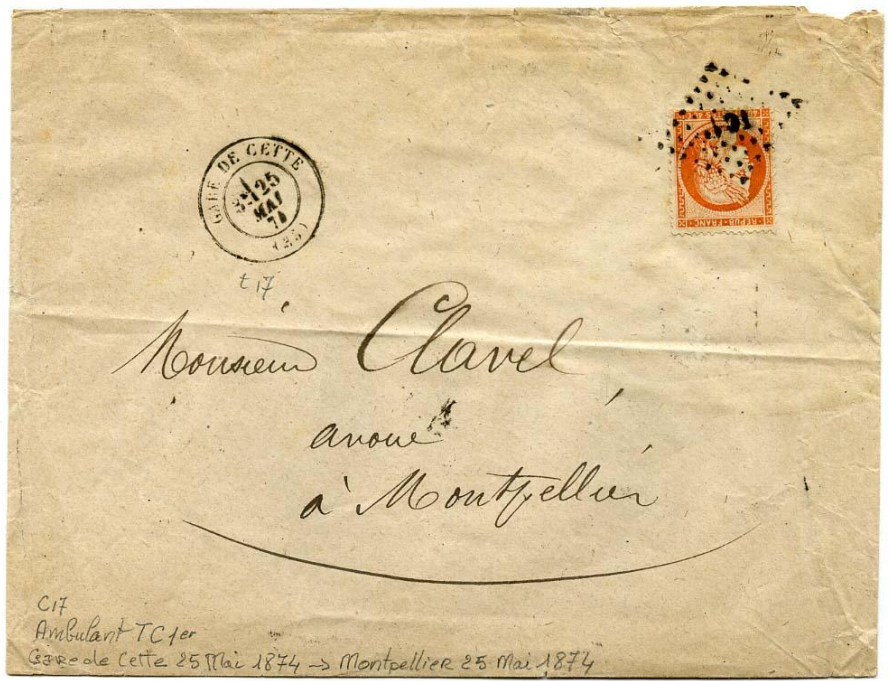 GARE DE CETTE
25
MAI
74
(33)
t 17
REPUB · FRANC
Monsieur Clavel
avoué
à Montpellier
C17
Ambulant TC 1er
Gare de Cette 25 Mai 1874 → Montpellier 25 Mai 1874